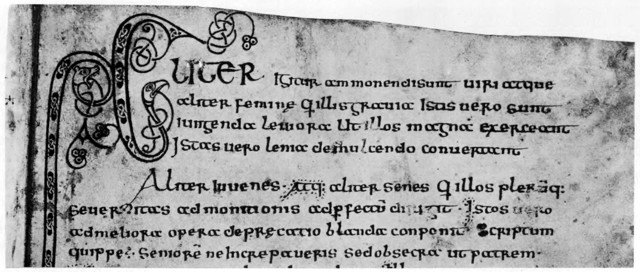 ALITER Igitur ammonendi sunt uiri atque
aliter femine q illis grauia Istas uero sunt
iungenda leuiora Ut illos magna exerceant
Istas uero leuia demulcendo conuertant
Aliter Iuuenes atq aliter senes q illos plerūq:
seueritas admonitionis ad pfectū dirigit Istos uero
ad meliora opera deprecatio blanda conponit Scriptum
quippe seniorē ne Increpaueris sed obsecra ut patrem